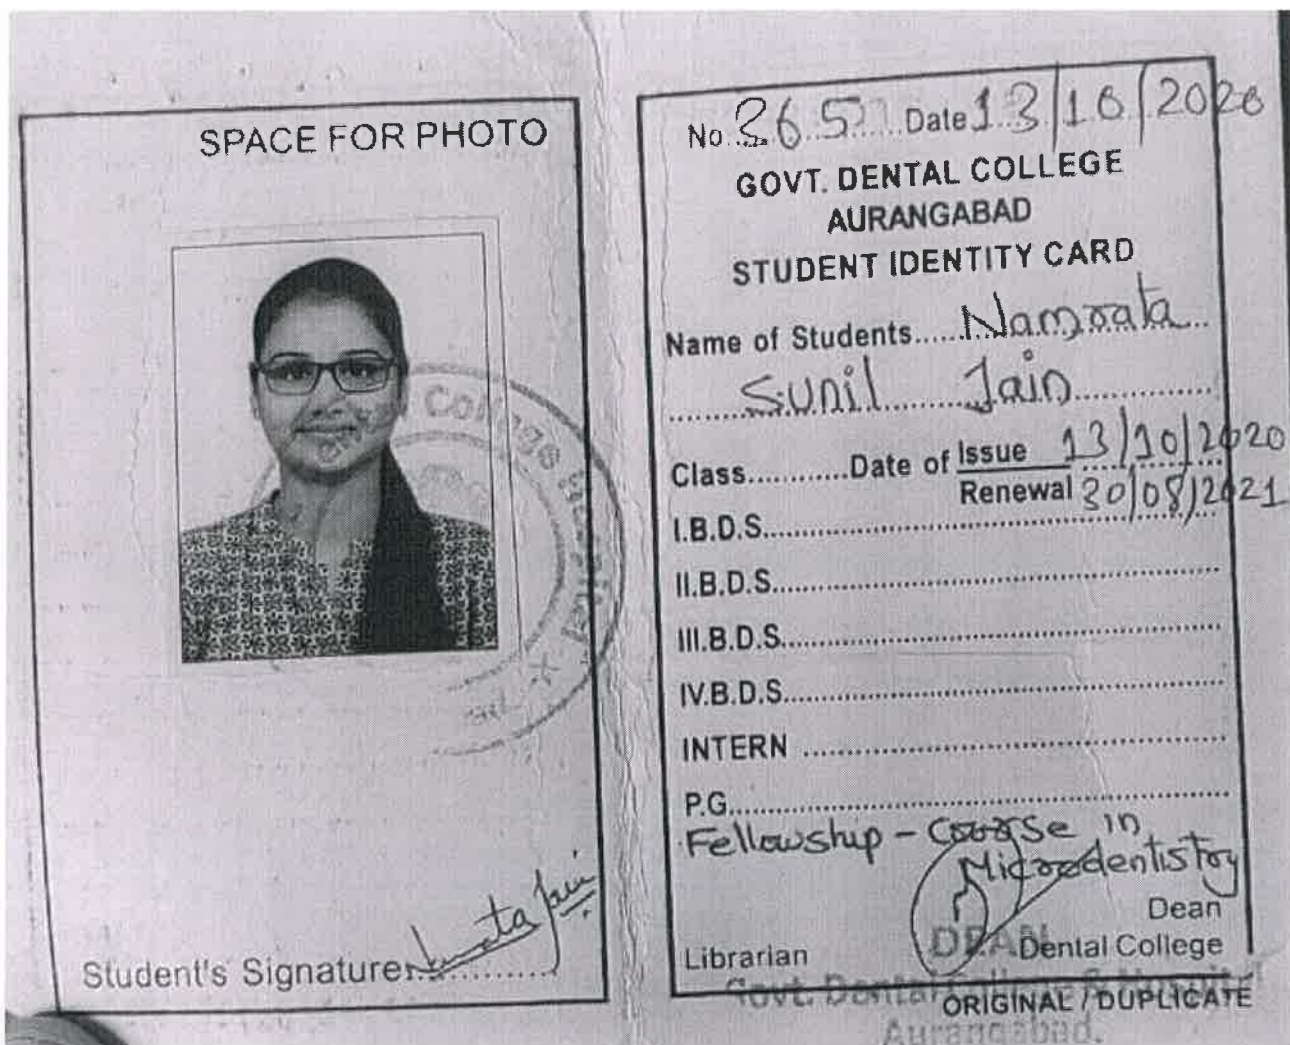 SPACE FOR PHOTO
College
Student's Signature
No. 365 Date 13/10/2020
GOVT. DENTAL COLLEGE
AURANGABAD
STUDENT IDENTITY CARD
Name of Students Namrata
Sunil Jain
Class Date of Issue 13/10/2020
Renewal 30/08/2021
I.B.D.S.
II.B.D.S.
III.B.D.S.
IV.B.D.S.
INTERN
P.G.
Fellowship - Course in
Microdentistry
Dean
Librarian DEAN Dental College
Govt. Dental College & Hospital
ORIGINAL / DUPLICATE
Aurangabad.